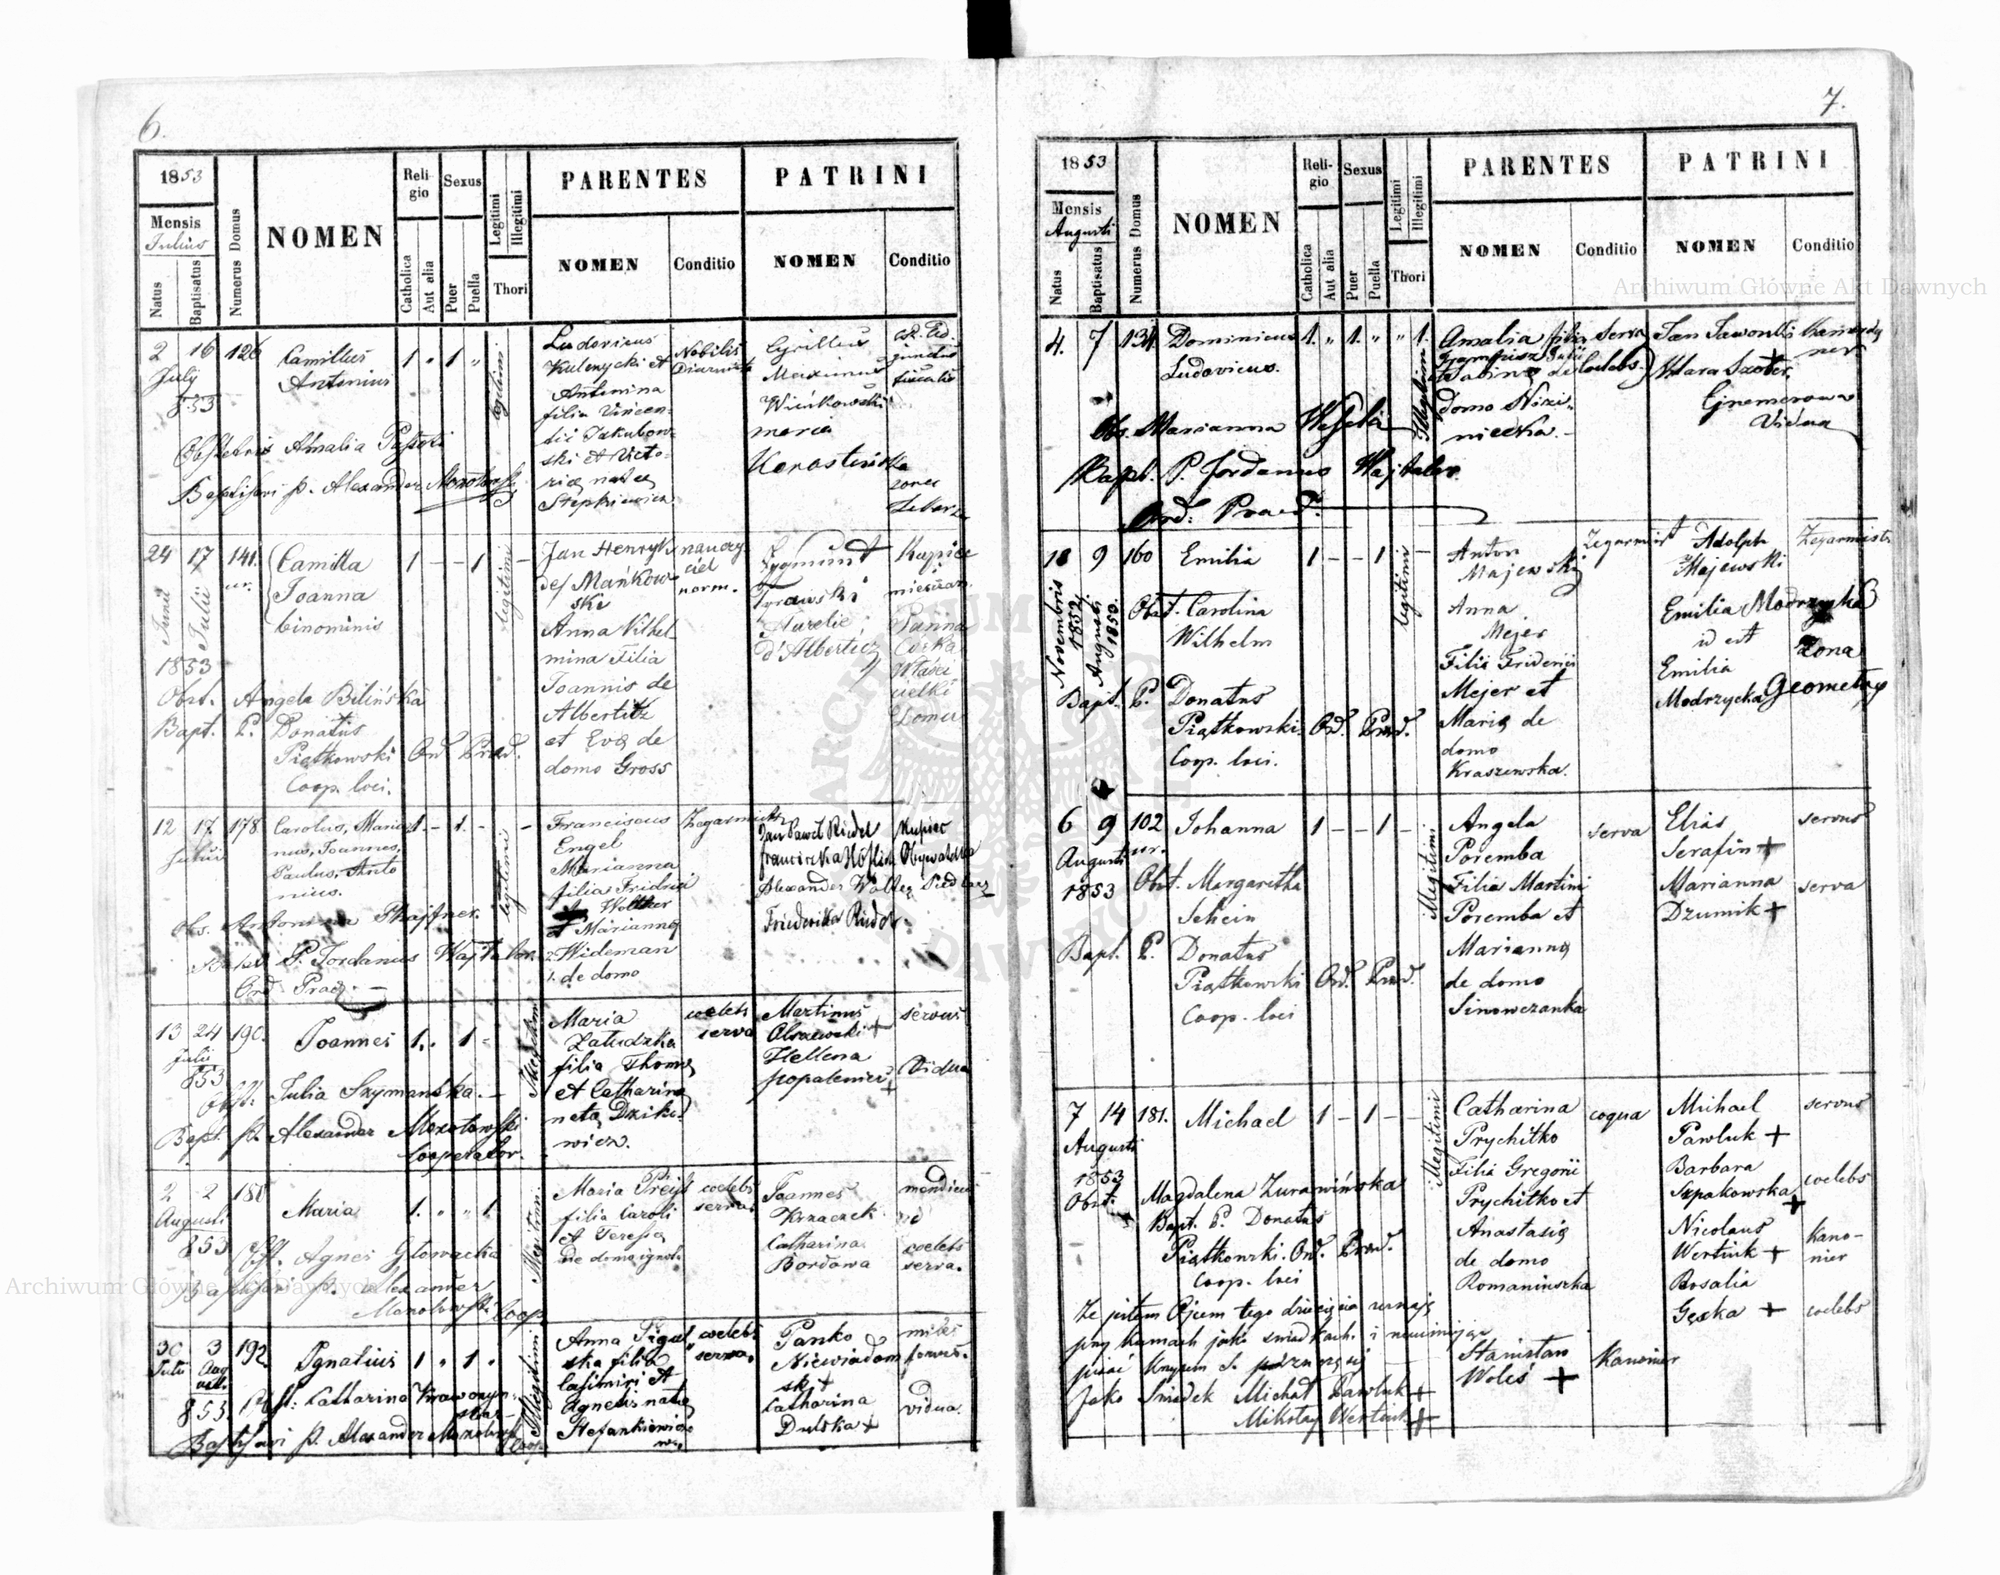 6.
1853
Mensis
Julius
Natus
Baptisatus
Numerus Domus
NOMEN
Reli-
gio
Catholica
Aut alia
Sexus
Puer
Puella
Legitimi
Illegitimi
Thori
PARENTES
NOMEN
Conditio
PATRINI
NOMEN
Conditio
2 16 126 Camillus 1 " 1 "
July Antonius
853
legitimi
Ludovicus
Kulczycki et
Antonina
filia Vincen-
tii Jakubow-
ski et Victo-
ria nata
Stepkiewicz
Nobilis
Diurnista
Cyrillus
Maximus
Wińkowski
Obstetrix Amalia
Baptisavi p. Alexander
24 17 141. Camilla 1 – – 1 –
Junii Julii
Joanna
binominis
1853
legitimi
Jan Henryk
de Mańkow-
ski
Anna Vilhel
mina Filia
Joannis de
Albertitz
et Eva de
domo Gross
nauczy-
ciel
norm.
Zygmunt
Tyrawski
Aurelie
d'Albertitz
Kupiec
mieszczan.
Panna
Córka
Właści
cielki
Domu
Obst. Angela Bilińska
Bapt. P. Donatus
Piątkowski Ord. Praed.
Coop. loci.
12 17 178 Carolus, Maria- 1. – 1. – –
Julii nus, Joannes,
Paulus, Anto
nius.
legitimi
Franciscus
Engel
Marianna
filia Fridrici
Wolther
et Marianna
2. Wideman
1. de domo
Zegarmistrz
Jan Paweł Riedel
Franciszka Höflin
Alexander Walter
Friederika Riedel
Kupiec
Obywatelka
Siedlarz
Obs. Antonina
Bapt. P. Jordanus Wajtalor.
Ord Praed. –
13 24 190. Joannes 1. . 1 "
Julii
853
Illegitimi
Maria
Zaludzka
filia Thoma
et Catharina
nata Dziku-
wicz.
coelebs
serva
Martinus
Olszewski +
Hellena
+
servus
Vidua
Obst. Julia Szymanska. –
Bapt. p. Alexander
Cooperator.
2 2 188 Maria 1. " " 1.
Augusti
853
Illegitimi
Maria
filia Caroli
et Teresia
de domo ignot.
coelebs
serva.
Joannes
Krzaczek
Catharina
Bordowa
coelebs
serva.
Obst. Agnes Głowacka
Baptisavi p. Alexander
Coop.
30 3 192. Ignatius 1 " 1 "
Julii Aug
ust.
853.
Illegitimi
Anna
ska filia
Casimiri et
Agnetis nata
Stefankiewicz
coelebs
serva.
Panko
Niewiadom
ski +
Catharina
Dulska +
miles
vidua.
Obst: Catharina
Baptisavi p. Alexander
Coop.
7.
1853
Mensis
Augusti
Natus
Baptisatus
Numerus Domus
NOMEN
Reli-
gio
Catholica
Aut alia
Sexus
Puer
Puella
Legitimi
Illegitimi
Thori
PARENTES
NOMEN
Conditio
PATRINI
NOMEN
Conditio
4. 7 134 Dominicus 1. " 1. " " 1.
Ludovicus.
Illegitimi
Amalia filia
domo Nizi-
niecka. –
Serva
coelebs
Jan
Klara
Vidua
Obs. Marianna
Bapt. P. Jordanus Wajtalor.
Ord: Praed:
18 9 160 Emilia 1 – – 1 –
Novembris 1852
Augusti 1853.
legitimi
Anton
Majewski
Anna
Mejer
Filii Friderici
Mejer et
Maria de
domo
Kraszewska.
Zegarmist
Adolph
Majewski
Emilia Modrzycka
id est
Emilia
Modrzycka
Zegarmistrz
Żona
Geometry
Obst. Carolina
Wilhelm
Bapt. P. Donatus
Piątkowski Ord. Praed.
Coop. loci.
6 9 102 Johanna 1 – – 1 –
Augusti
1853
Illegitimi
Angela
Poremba
Filia Martini
Poremba et
Marianna
de domo
Sinowczanka
serva
Elias
Serafin +
Marianna
Dzumik +
servus
serva
Obst. Margaretha
Schein
Bapt. P. Donatus
Piątkowski Ord. Praed.
Coop. loci
7 14 181. Michael 1 – 1 – –
Augusti
1853
Illegitimi
Catharina
Prychitko
Filia Gregorii
Prychitko et
Anastasia
de domo
Romaniuszka
coqua
Michael
Pawluk +
Barbara
Szpakowska +
Nicolaus
Wertiuk +
Rosalia
Gęska +
servus
coelebs
Kano-
nier
coelebs
Obst. Magdalena Zurawińska
Bapt. P. Donatus
Piątkowski. Ord. Praed.
Coop. loci
Że jestem Ojcem tego dziecięcia uznaję
przy kumach jako świadkach i nieumiejąc
pisać Krzyżem S.
Jako Świadek Michał Pawluk +
Mikołaj Wertiuk +
Stanisław
Woleś +
Kanonier
Archiwum Główne Akt Dawnych
Archiwum Główne Akt Dawnych